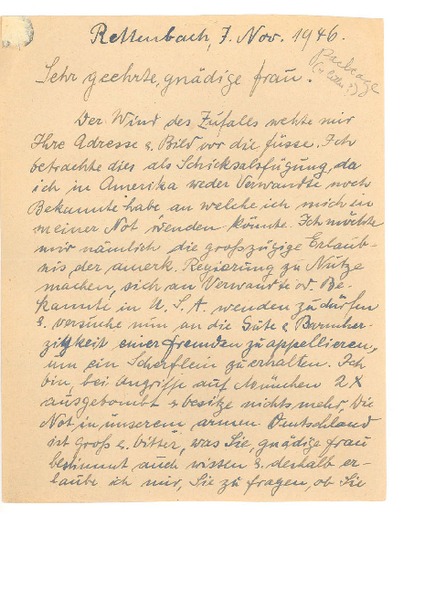 Rettenbach, 7. Nov. 1946.
Package
Sehr geehrte, gnädige Frau!
Der Wind des Zufalls wehte mir
Ihre Adresse & Bild vor die Füsse. Ich
betrachte dies als Schicksalsfügung, da
ich in Amerika weder Verwandte noch
Bekannte habe an welche ich mich in
meiner Not wenden könnte. Ich möchte
mir nämlich die großzügige Erlaub-
nis der amerk. Regierung zu Nütze
machen, sich an Verwandte od. Be-
kannte in U.S.A. wenden zu dürfen
& versuche nun an die Güte & Barmher-
zigkeit einer Fremden zu appellieren,
um ein Scherflein zu erhalten. Ich
bin, bei Angriffe auf München 2 X
ausgebombt & besitze nichts mehr, Die
Not in unserem armen Deutschland
ist groß & bitter, was Sie, gnädige Frau
bestimmt auch wissen & deshalb er-
laube ich mir, Sie zu fragen, ob Sie